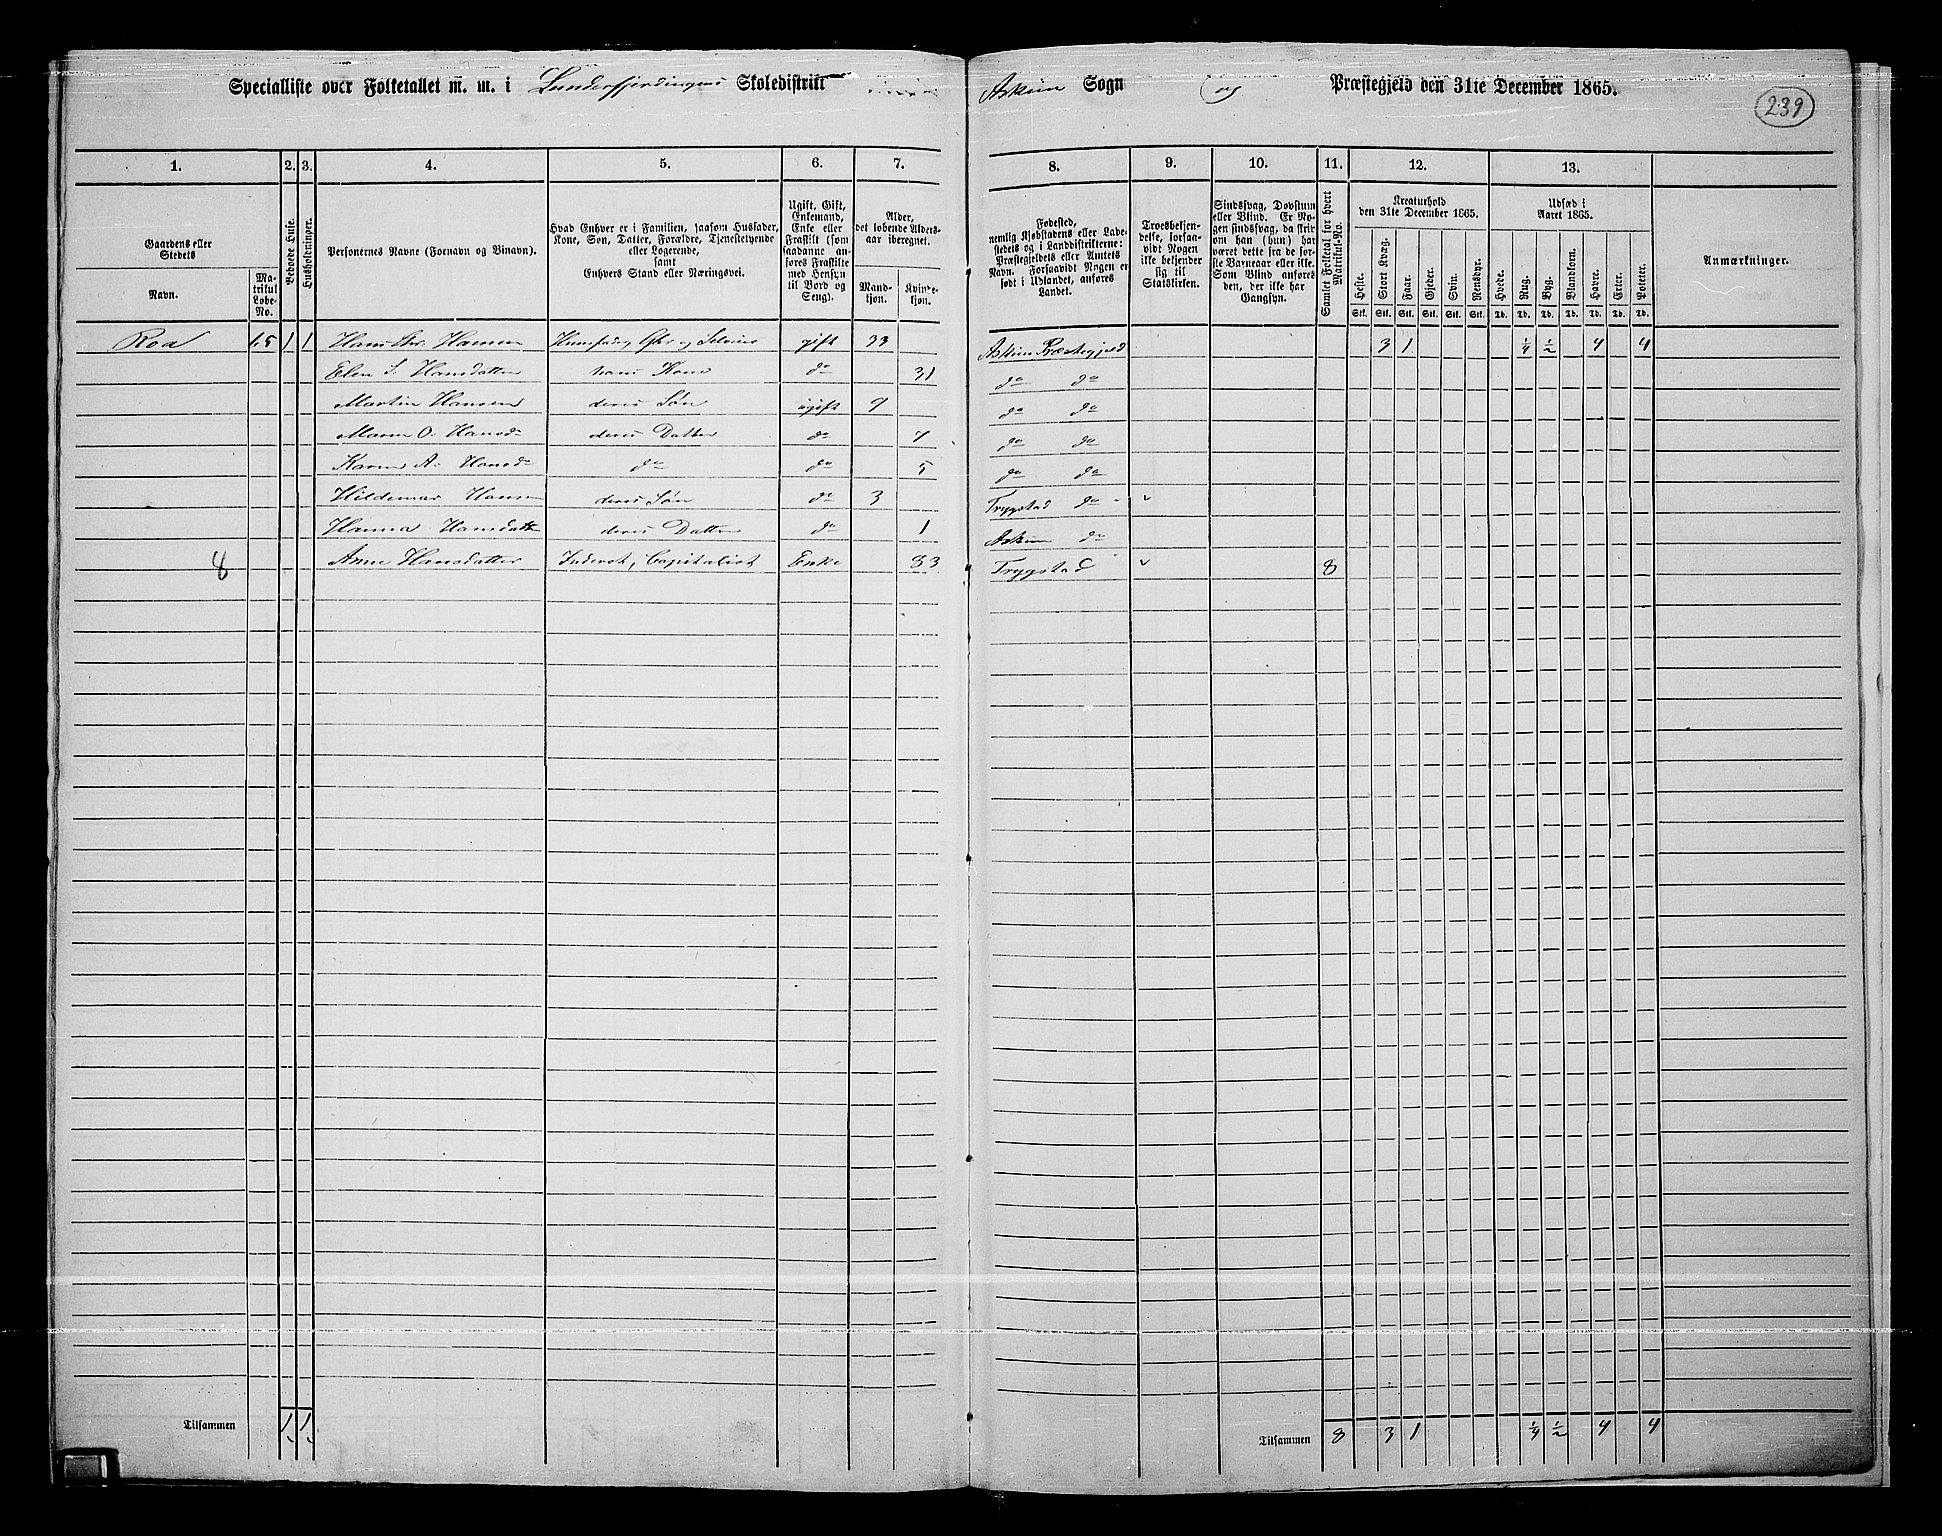 Specialliste over Folketallet m. m. i Lunderfjerdingens Skoledistrikt
Askim Sogn og Præstegjeld den 31te December 1865.
239
1. 2. 3. 4. 5. 6. 7.
8. 9. 10. 11. 12. 13.
Gaardens eller Stedets
Navn.
Matrikul Løbe-No.
Beboede Huse.
Husholdninger.
Personernes Navne (Fornavn og Binavn).
Hvad Enhver er i Familien, saasom Husfader,
Kone, Søn, Datter, Forældre, Tjenestetyende
eller Logerende,
samt
Enhvers Stand eller Næringsvei.
Ugift, Gift,
Enkemand,
Enke eller
Fraskilt (som
saadanne an-
føres Fraskilte
med Hensyn
til Bord og
Seng).
Alder,
det løbende Alders-
aar iberegnet.
Mand-
kjøn.
Kvinde-
kjøn.
Fødested,
nemlig Kjøbstadens eller Lade-
stedets og i Landdistrikterne:
Præstegjeldets eller Amtets
Navn. Forsaavidt Nogen er
født i Udlandet, anføres
Landet.
Troesbekjen-
delse, forsaa-
vidt Nogen
ikke bekjender
sig til
Statskirken.
Sindssvag, Døvstum
eller Blind. Er No-
gen sindssvag, da skriv
om han (hun) har
været dette fra de før-
ste Barneaar eller ikke.
Som Blind anføres
den, der ikke har
Gangsyn.
Samlet Folketal for hvert
Matrikul-No.
Kreaturhold
den 31te December 1865.
Heste. Stort Kvæg. Faar. Gjeder. Svin. Rensdyr.
Stk. Stk. Stk. Stk. Stk. Stk.
Udsæd i
Aaret 1865.
Hvede. Rug. Byg. Blandkorn. Havre. Erter. Poteter.
Td. Td. Td. Td. Td. Td. Td.
Anmærkninger.
Roa 15 1 1 Hans Chr. Hansen Husfader, og gift 33 Askim Præstegjeld 3 1 1/4 1/2 4 4
Elen S. Hansdatter hans Kone do 31 do do
Martin Hansen deres Søn ugift 9 do do
Maren O. Hansd deres Datter do 7 do do
Karen A. Hansd do do 5 do do
Hildemar Hansen deres Søn do 3 Trygstad do
Hanna Hansdatter deres Datter do 1 Askim do
8 Anne Hansdatter Inderst, Capitalist Enke 83 Trygstad 8
Tilsammen 1 1
Tilsammen 8 3 1 1/4 1/2 4 4